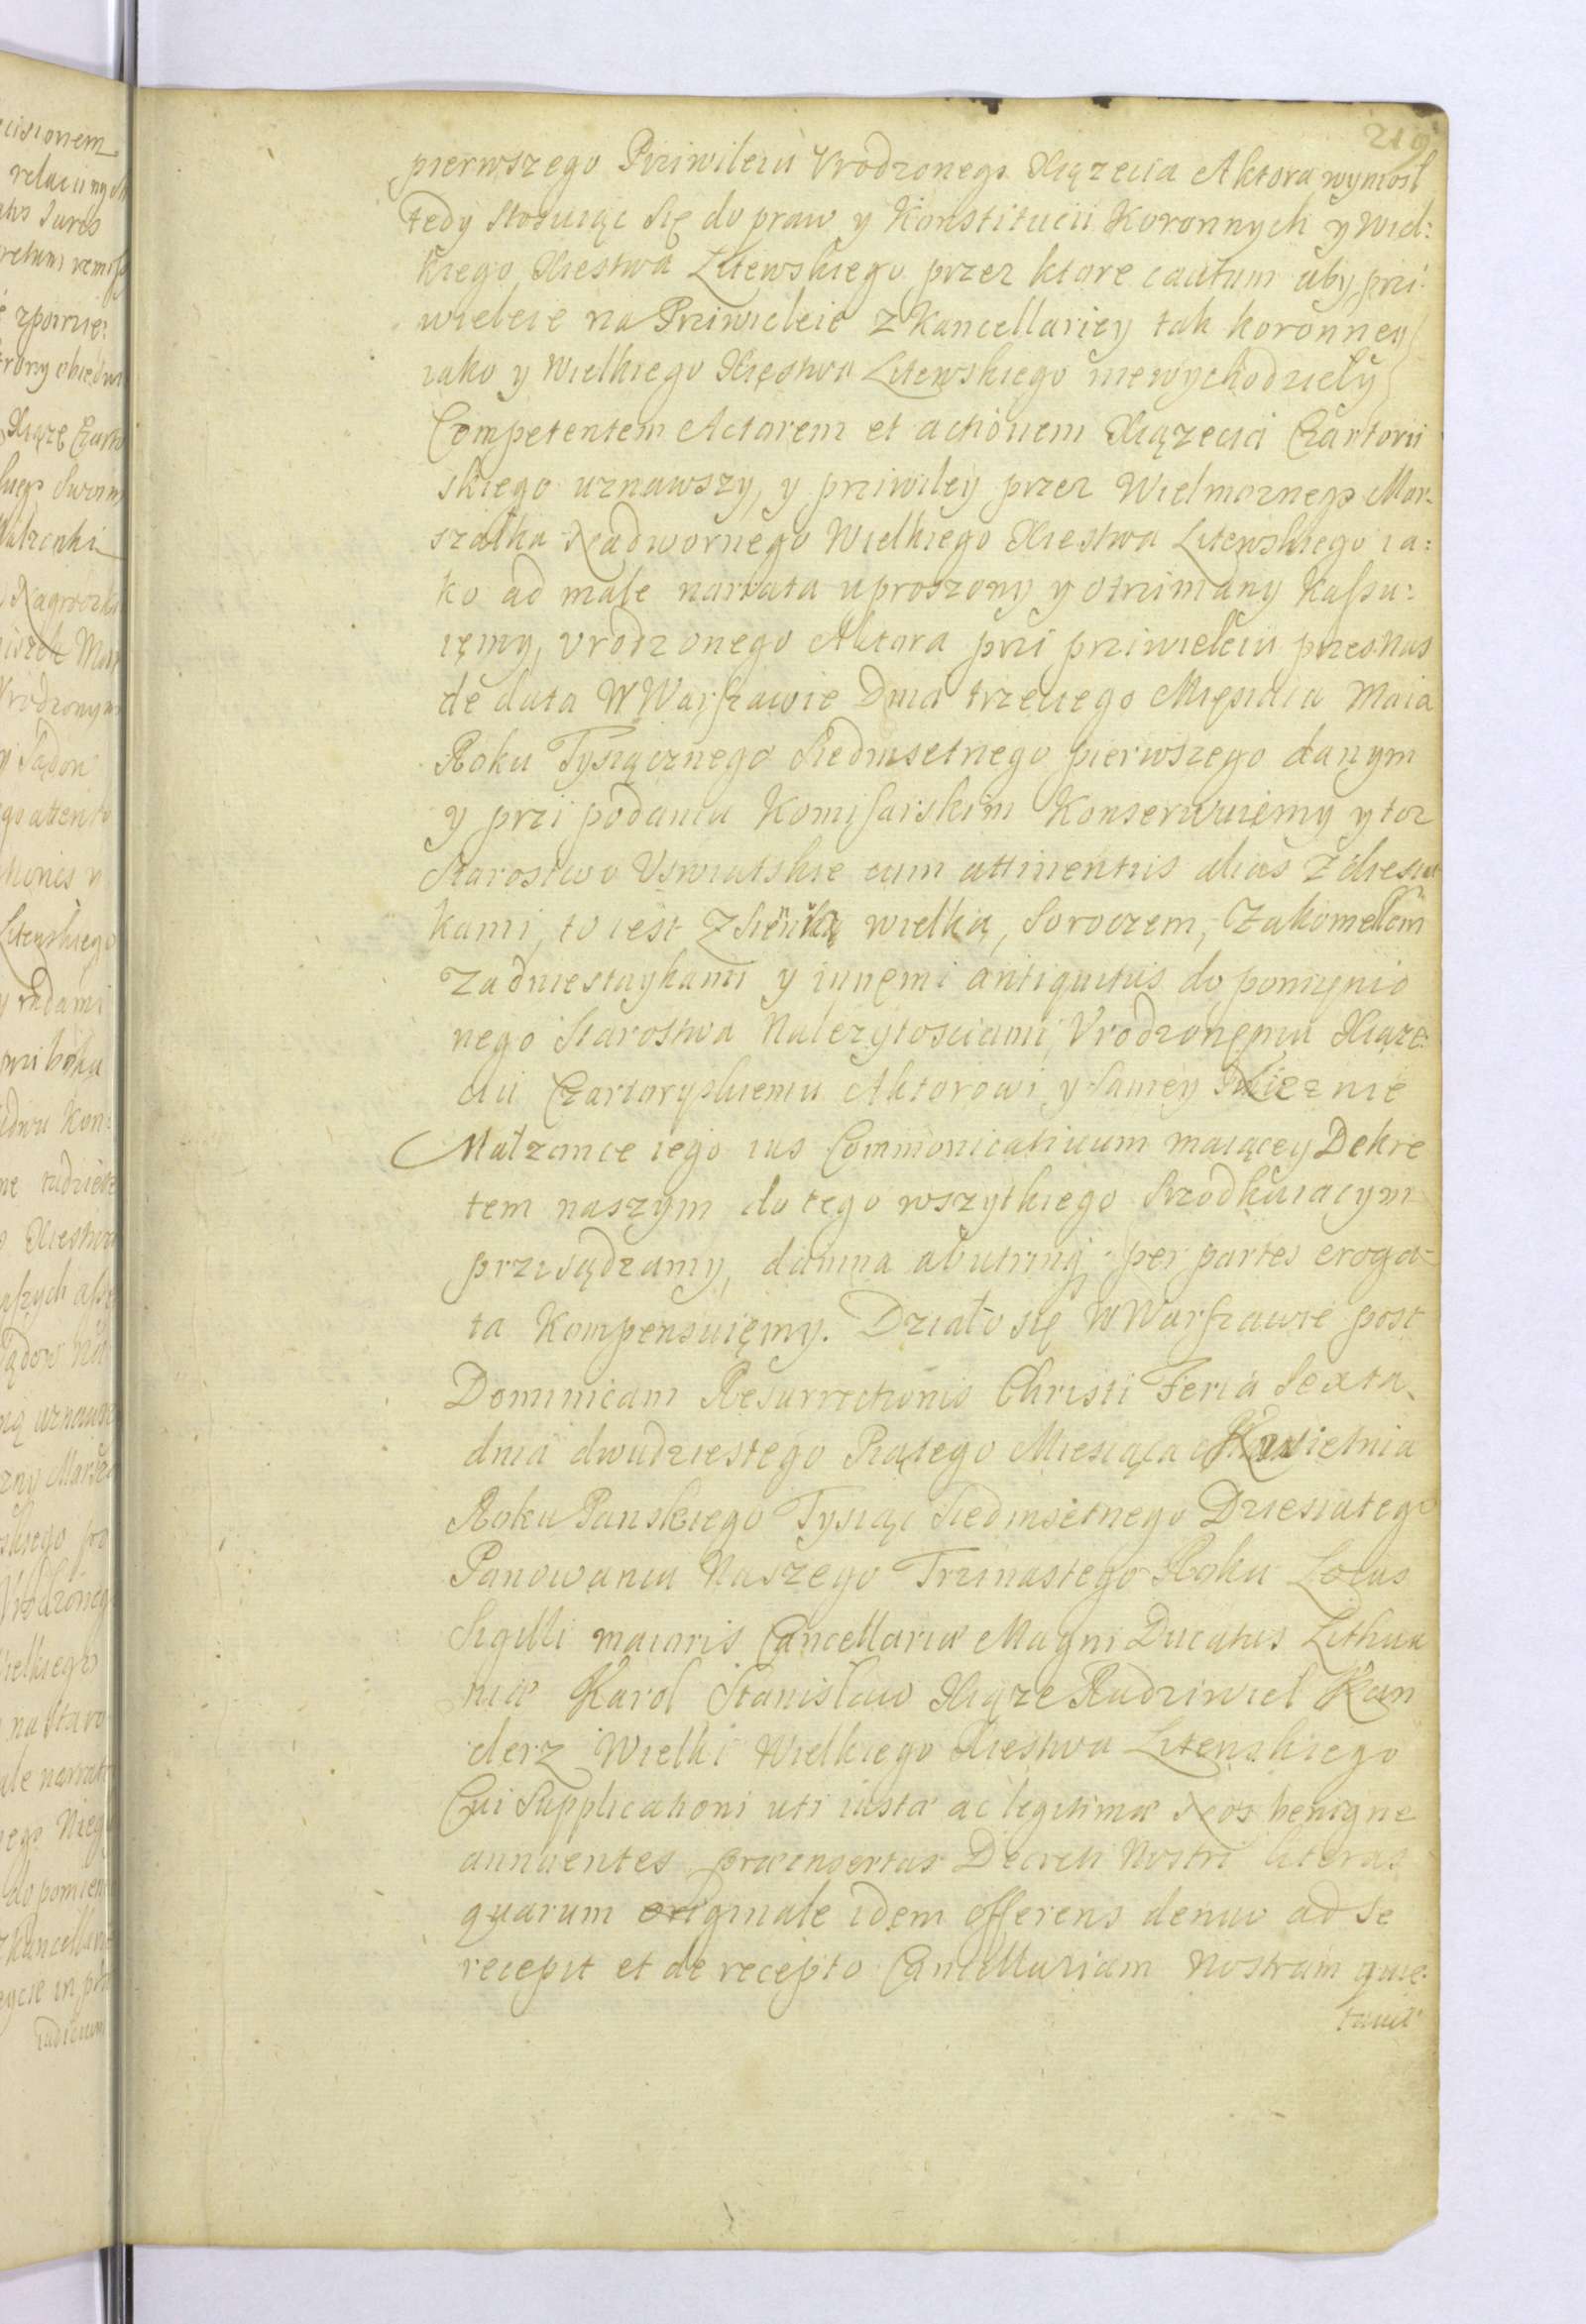 219
pierwszego Priwileiu Vrodzonego Xiązecia Aktora wyniosł
tedy Stosuiąc Się do praw y Konstitucii Koronnych y Wiel:
kiego Xiestwa Litewskiego przez ktore cautum aby pri:
wieleie na Priwieleie z Kancellariey tak koronney
iako y Wielkiego Xięstwa Litewskiego niewychodzieły
Competentem Actorem et actionem Xiązecia Czartorii
skiego uznawszy, y priwiley przez Wielmoznego Mar-
szałka Nadwornego Wielkiego Xiestwa Litewskiego ia:
ko ad male narrata uproszony y otrzimany Kassu:
ięmy, Vrodzonego Aktora przi priwieleiu przesNas
de data W Warszawie Dnia trzeciego Mięsiaca Maia
Roku Tysiącznego Siedmsetnego pierwszego danym
y przi podaniu Komisarskim Konserwuięmy y toz
Starostwo Vswiatskie cum attinentiis alias z
kami, to iest Z wielką, Soroczem, Zakomellem
Zadniestaykami y innęmi antiquitus do pomięnio
nego Starostwa Nalezytosciami, Vrodzonęmu Xiąze:
ciu Czartoryskiemu Aktorowi y Samey Xięznie
Małzonce iego ius Commonicativum maiącey Dekre
tem naszym do tego wszytkiego Srzodkuiacym
przisądzamy, damna ab utrinq per partes eroga-
ta Kompensuięmy. Działo się W Warszawie post
Dominicam Resurrectionis Christi Feria Sexta
dnia dwudziestego Piątego Miesiąca Kwietnia
Roku Panskiego Tysiąc Siedmsetnego Dziesiatego
Panowania Naszego Trzinastego Roku Locus
Sigilli maioris Cancellariæ Magni Ducatus Lithua
niæ Karol Stanisław Xiąze Radziwieł Kan
clerz Wielki Wielkiego Xiestwa Litewskiego
Cui Supplicationi uti iustæ ac legitimæ Nos benigne
annuentes præinsertas Decreti Nostri literas
quarum originale idem offerens denuo ad se
recepit et de recepto Cancellariam Nostram quie:
tauit